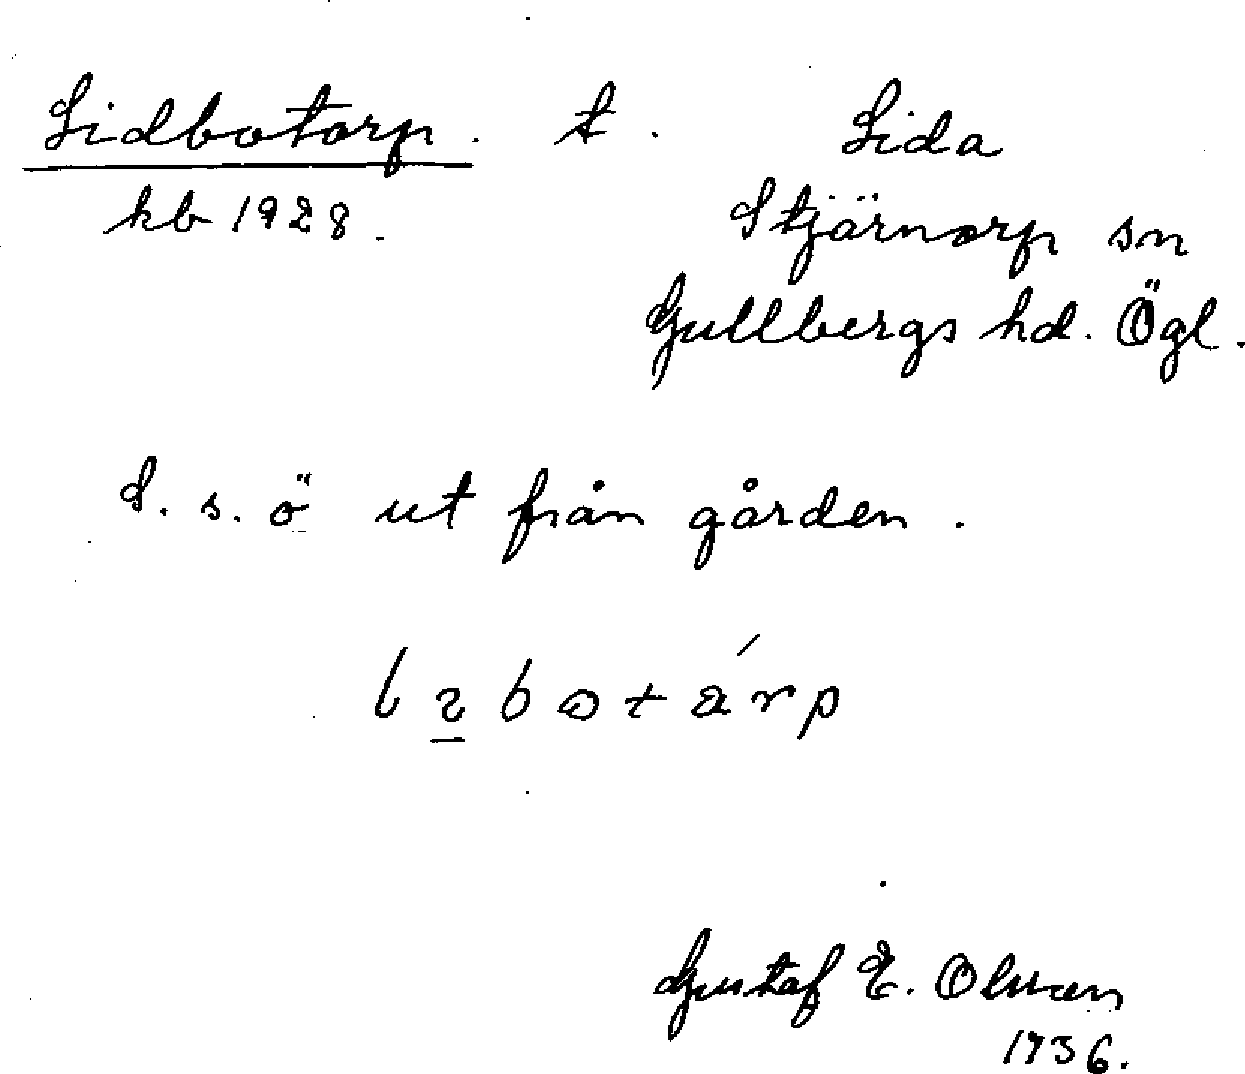 Lidbotorp. t. Lida
kb 1928. Stjärnorp sn
Gullbergs hd. Ögl.
S. s. ö ut från gården.
Gustaf E. Olsson
1936.